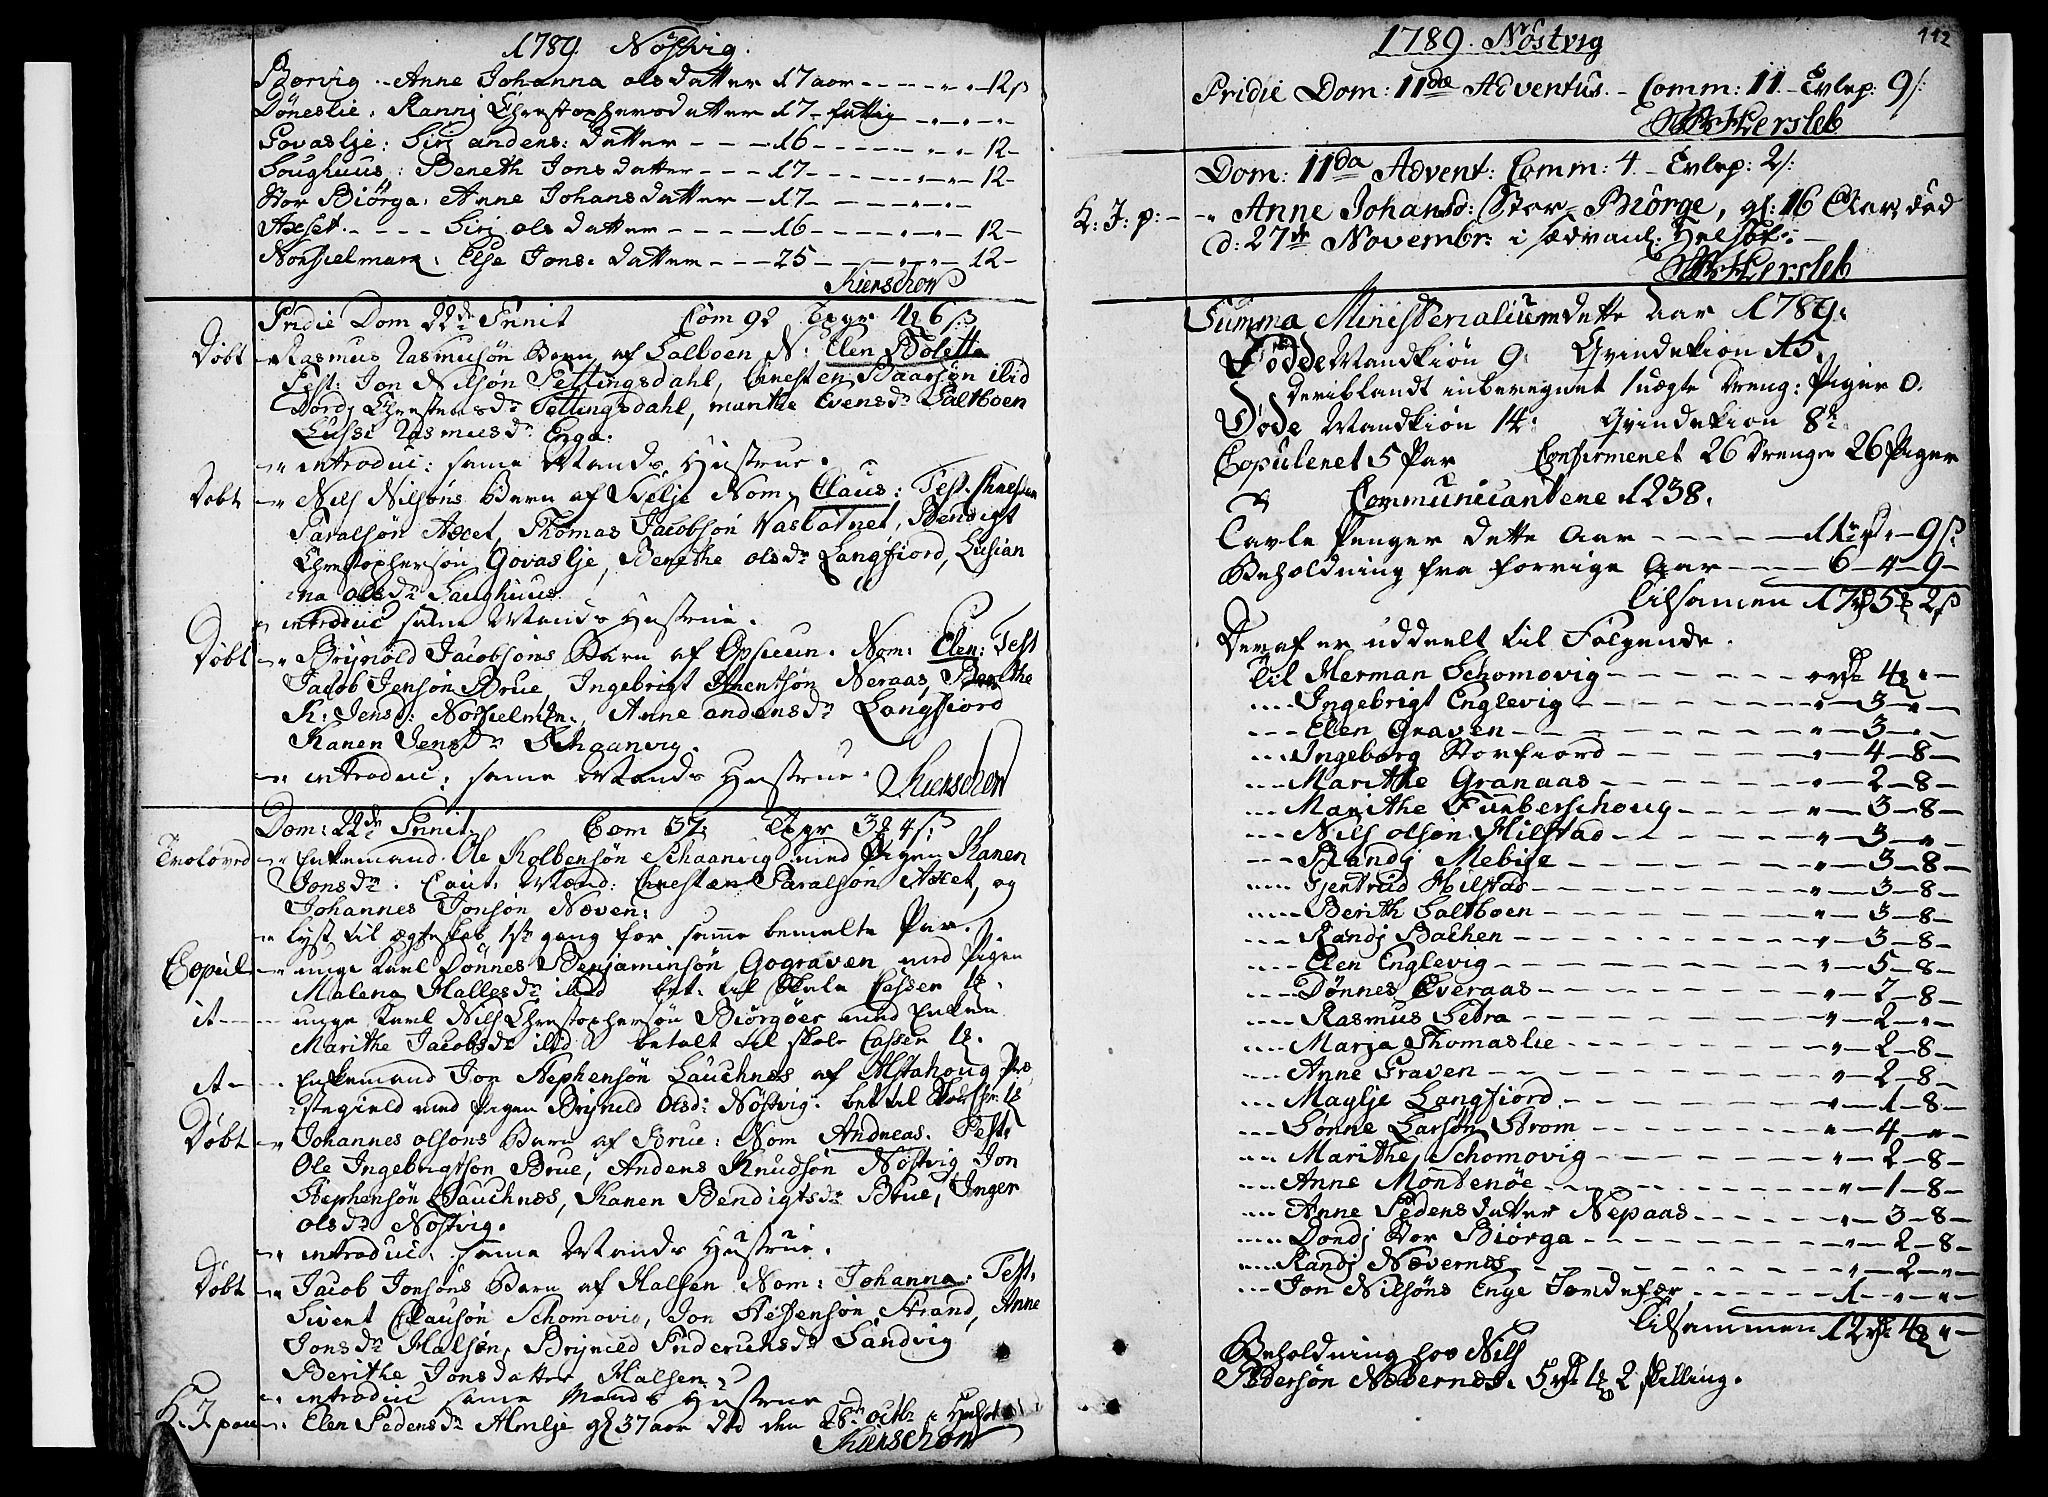 1789. Nöstvig.
Borvig. - Anne Johanna olsdatter 17 aar - - - - 12 ß
Döneslie: Rannj Christophersdatter 17 - fattig - - -
Govaslje: Sirj anders: datter - - - 16 - - - - - 12 -
Soughuus: Bereth Jonsdatter - - - 17 - - - - - - 12 -
Stor Biörga: Anne Johansdatter - 17 - - - - - -
Axset - - - - Sirj olsdatter - - - - 16 - - - - - 12 -
Norhielmen: Else Jons: datter - - - 25 - - - - - 12 -
Kierschow
Pridie Dom 22de Trinit Com 92 Expr 4 6 ß
Döbt - Rasmus Rasmusön Barn af Saltboen N: Elen Bolette
Test: Jon Nilsön Tettingsdahl, Christen Baarsön ibid
Dordj Christensdr Tettingsdahl, marithe Evensdr Saltboen
Lussi Rasmusdr Enga.
- introduc: same Mands Hustrue.
Döbt - Nils Nilsöns Barn af Nom, Claus: Test. Christen
Paralsön Axet, Thomas Jacobsön Vasbatnet, Bendigt
Christophersön Govaslje, Berethe olsdr Langfiord, Lusian
na olsdr Saughuus.
- introduc same Mands Hustrue.
Döbt - Brijnild Jacobsöns Barn af Opsuun. Nom: Elen: Test
Jacob Jensön Brue, Ingebrigt Arentsön Neraas, Berithe
K: Jensd: Norhielmen, Anne andersdr Langfiord
Karen Jensdr Schaanvig.
- introduc: same Mands Hustrue. Kierschow
Dom: 22de Trinit. Com 37: Expr 3 4 ß
Troloved - Enkemand Ole Kolbensön Schaanvig med Pigen Karen
Jonsdr. Caut. Mænd: Christen Paralsön Axet, og
Johannes Jonsön Næven:
- lyst til ægteskab 1ste gang for samme bemelte Par.
Copul - unge Karl Dönnes Benjaminsön Gograven med Pigen
Malena Hallesdr ibid bet. til Skole Cassen 1
it - - unge Karl Nils Christophersön Biörgöer med Enken
Marithe Jacobsdr ibid betalt til skole Cassen 1
it - - Enkemand Jon Stephensön Lauchnes af Alstahoug Præ
stegield med Pigen Brijnild Olsdr: Nöstvig. bet til Skol
Döbt - Johannes olsöns Barn af Brue: Nom Andreas. Test:
Ole Ingebrigtsön Brue, Anders Knudsön Nöstvig Jon
Stephensön Lauchnes, Karen Bendigtsdr Brue, Inger
olsdr Nöstvig.
- introduc. same Mands Hustrue.
Döbt - Jacob Jonsöns Barn af Halsen Nom: Johanna: Test.
Sivert Clausön Schomovig, Jon Stephensön Strand, Anne
Jonsdr Halsön, Brijnild Friderichsdr Sandvig
Berithe Jonsdatter Halsen
- introduc same Mands Hustrue
K. J. paa - Elen Pedersdr Almlje gl 37 aar död den 28de octbr
Kierschow
1789. Nöstvig
112
Pridie Dom: IIdæ Adventus. - Comm: 11. - Exlep: 9 ß:
Hersleb
Dom: IIda Advent: Comm: 4. - Exlep: 2 ß:
K: J: p: - - Anne Johansd: Stor-Biörge, gl: 16 Aar, död
d: 27de Novembr: i sædvanl:
Hersleb
Summa Ministerialium dette Aar 1789.
Födde Mandkiön 9. Qvindekiön 15.
Deriblandt inberegnet 1 uægte Dreng: Piger 0.
Döde Mandkiön 14. Qvindekiön 8te
Copuleret 5 Par Confirmeret 26 Drenge 26 Piger
Communicantene 1238.
Tavle Penger dette Aar - - - - - 11 rd - 9 ß
Beholdning fra forrige Aar - - - - 6 - 4 - 9 -
Tilsamen 17 rd 5 2 ß
Deraf er uddeelt til Fölgende.
Til Herman Schomovig - - - - - - 4 -
- - - Ingebrigt Englevig - - - - - 3 -
- - - Elen Graven - - - - - 3 -
- - - Ingeborg Storfiord - - - - - 4 - 8 -
- - - Marithe Granaas - - - - - 2 - 8 -
- - - Marithe Funberschoug - - - - - 3 - 8 -
- - - Nils olsön Hilstad - - - - - 3 -
- - - Randj Mebije - - - - - 3 - 8 -
- - - Gjertrud Hilstad - - - - - 3 - 8 -
- - - Berith Saltboen - - - - - 3 - 8 -
- - - Randj Bachen - - - - - 3 - 8 -
- - - Elen Englevig - - - - - 5 - 8 -
- - - Dönnes Everaas - - - - - 2 - 8 -
- - - Rasmus Setra - - - - - 2 -
- - - Marja Thomaslie - - - - - 2 - 8 -
- - - Anne Graven - - - - - 2 - 8 -
- - - Maylje Langfiord - - - - - 1 - 8 -
- - - Sönne Larsön Strom - - - - - 4 -
- - - Marithe Schomovig - - - - - 2 - 8 -
- - - Anne Montenöe - - - - - 1 - 8 -
- - - Anne Pedersdatter Nepaas - - - - - 3 - 8 -
- - - Dordj Stor Biörga - - - - - 2 - 8 -
- - - Randj Nævernes - - - - - 2 -
- - - Jon Nilsöns Enge Jordefær - - - - - 1 -
Tilsammen 12 rd 4 -
Beholdning hos Nils
Pedersön Næbernes. 5 rd 1 2 skilling.